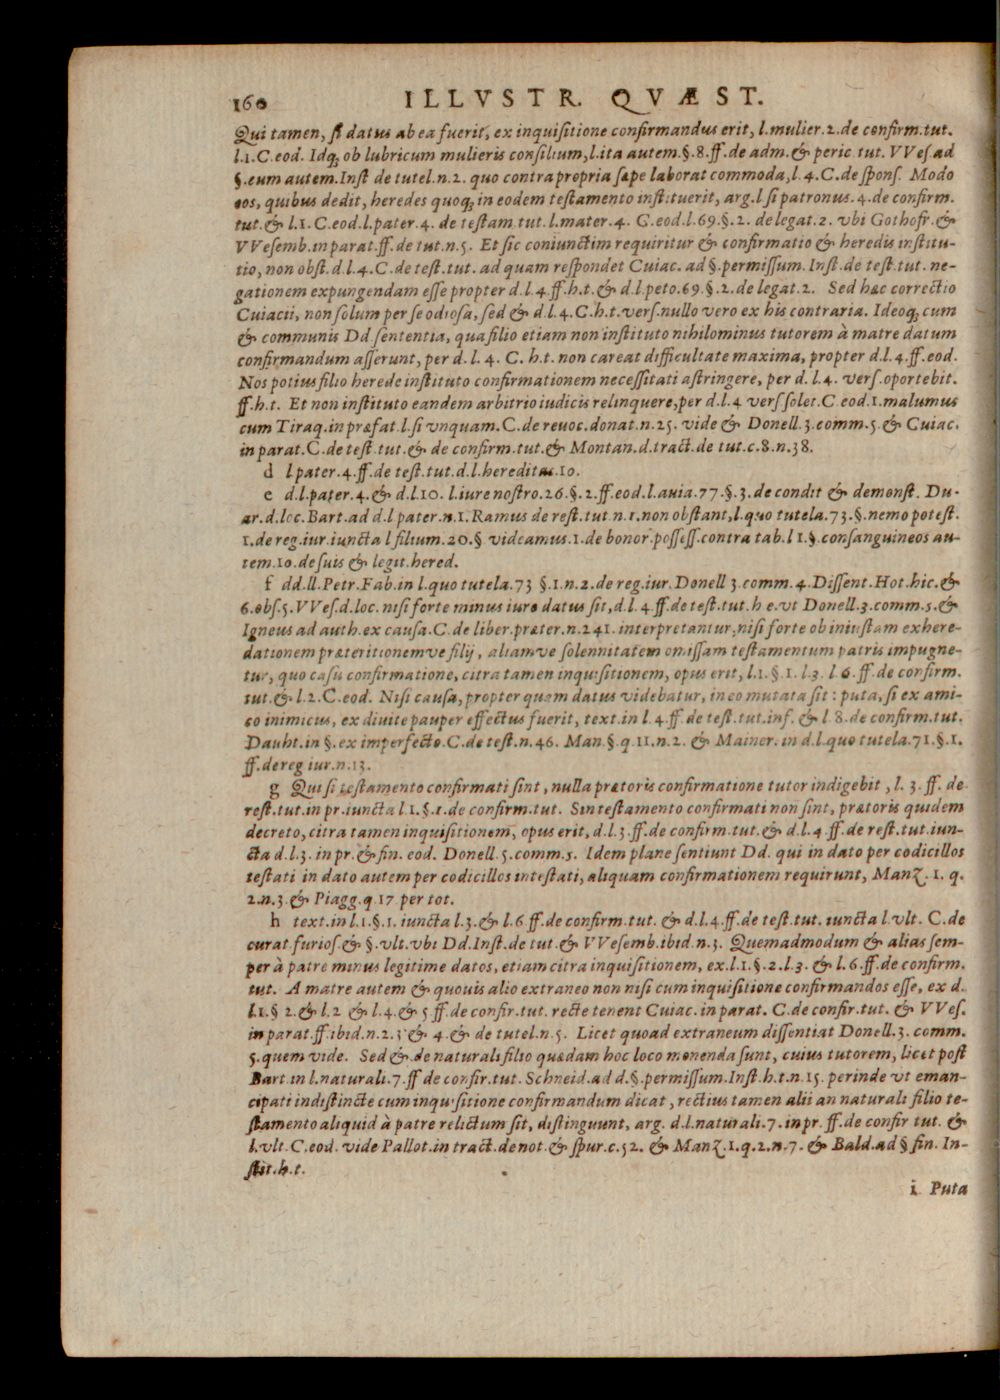 160 ILLVSTR. QVÆST.
Qui tamen, si datus ab ea fuerit, ex inquisitione confirmandus erit, l.mulier.2.de confirm.tut.
l.1.C.eod. Idq; ob lubricum mulieris consilium, l.ita autem.§.8.ff.de adm.& peric.tut. VVes.ad
§.eum autem.Inst de tutel.n.2. quo contra propria sæpe laborat commoda, l.4.C.de spons. Modo
eos, quibus dedit, heredes quoq; in eodem testamento instituerit, arg.l.si patronus.4.de confirm.
tut.& l.1.C.eod.l.pater.4. de testam.tut.l.mater.4. C.eod.l.69.§.2. de legat.2. vbi Gothofr.&
VVesemb.in parat.ff.de tut.n.5. Et sic coniunctim requiritur & confirmatio & heredis institu-
tio, non obst.d.l.4.C.de test.tut. ad quam respondet Cuiac. ad §.permissum.Inst.de test.tut. ne-
gationem expungendam esse propter d.l.4.ff.h.t.& d.l.peto.69.§.2.de legat.2. Sed hæc correctio
Cuiacii, non solum per se odiosa, sed & d.l.4.C.h.t.vers.nullo vero ex his contraria. Ideoq; cum
& communis Dd.sententia, qua filio etiam non instituto nihilominus tutorem à matre datum
confirmandum asserunt, per d.l.4. C. h.t. non careat difficultate maxima, propter d.l.4.ff.eod.
Nos potius filio herede instituto confirmationem necessitati astringere, per d.l.4. vers.oportebit.
ff.h.t. Et non instituto eandem arbitrio iudicis relinquere, per d.l.4 vers solet.C eod.1.malumus
cum Tiraq.in præfat.l.si vnquam.C.de reuoc.donat.n.25. vide & Donell.3.comm.5.& Cuiac.
in parat.C.de test.tut.& de confirm.tut.& Montan.d.tract.de tut.c.8.n.38.
d l.pater.4.ff.de test.tut.d.l.hereditas.10.
e d.l.pater.4.& d.l.10. l.iure nostro.26.§.2.ff.eod.l.auia.77.§.3.de condit & demonst. Du-
ar.d.loc.Bart.ad d.l pater.n.1.Ramus de rest.tut n.1.non obstant, l.quo tutela.73.§.nemo potest.
1.de reg.iur.iuncta l filium.20.§ videamus.1.de bonor.possess.contra tab.l 1.§.consanguineos au-
tem.10.de suis & legit.hered.
f dd.ll.Petr.Fab.in l.quo tutela.73 §.1.n.2.de reg.iur.Donell 3.comm.4.Dissent.Hot.hic.&
6.obs.5.VVes.d.loc. nisi forte minus iure datus sit, d.l.4.ff.de test.tut.h e.vt Donell.3.comm.5.&
Igneus ad auth.ex causa.C.de liber.præter.n.241. interpretantur, nisi forte ob iniustam exhere-
dationem præteritionemve filij, aliamve solennitatem omissam testamentum patris impugne-
tur, quo casu confirmatione, citra tamen inquisitionem, opus erit, l.1.§.1. l.3. l.6.ff.de confirm.
tut.& l.2.C.eod. Nisi causa, propter quam datus videbatur, in eo mutata sit: puta, si ex ami-
co inimicus, ex diuite pauper effectus fuerit, text.in l.4.ff.de test.tut.inf. & l.8.de confirm.tut.
Dauht.in §.ex imperfecto.C.de test.n.46. Man.§.q.11.n.2. & Mainer. in d.l.quo tutela.71.§.1.
ff.de reg iur.n.13.
g Qui si testamento confirmati sint, nulla prætoris confirmatione tutor indigebit, l. 3. ff. de
rest.tut.in pr.iuncta l 1.§.1.de confirm.tut. Sin testamento confirmati non sint, prætoris quidem
decreto, citra tamen inquisitionem, opus erit, d.l.3.ff.de confirm.tut.& d.l.4.ff.de rest.tut.iun-
cta d.l.3. in pr.& fin. eod. Donell.5.comm.5. Idem plane sentiunt Dd. qui in dato per codicillos
testati in dato autem per codicillos intestati, aliquam confirmationem requirunt, Manz. 1. q.
2.n.3.& Piagg.q 17 per tot.
h text.in l.1.§.1. iuncta l.3.& l.6.ff.de confirm.tut. & d.l.4.ff.de test.tut. iuncta l.vlt. C.de
curat.furios.& §.vlt.vbi Dd.Inst.de tut.& VVesemb.ibid.n.3. Quemadmodum & alias sem-
per à patre minus legitime datos, etiam citra inquisitionem, ex.l.1.§.2.l.3. & l.6.ff.de confirm.
tut. A matre autem & quouis alio extraneo non nisi cum inquisitione confirmandos esse, ex d.
l.1.§ 2.& l.2 & l.4.& 5.ff.de confir.tut. recte tenent Cuiac. in parat. C.de confir.tut. & VVes.
in parat.ff.ibid.n.2.3 & 4.& de tutel.n.5. Licet quoad extraneum dissentiat Donell.3. comm.
5.quem vide. Sed & de naturali filio quædam hoc loco monenda sunt, cuius tutorem, licet post
Bart.in l.naturali.7.ff de confir.tut. Schneid.ad d.§.permissum.Inst.h.t.n.15. perinde vt eman-
cipati indistincte cum inquisitione confirmandum dicat, rectius tamen alii an naturali filio te-
stamento aliquid à patre relictum sit, distinguunt, arg. d.l.naturali.7.in pr. ff.de confir tut. &
l.vlt.C.eod. vide Pallot.in tract.de not.& spur.c.52. & Manz.1.q.2.n.7. & Bald.ad § fin. In-
stit.h.t.
i Puta